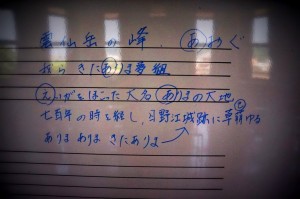 雲仙岳の峰、ありめぐ
から きたありま夢組
えいがをほこった大名 ありまの大地
七百年の時を経し、日野江城跡に草萌ゆる
ありま ありま きたありま